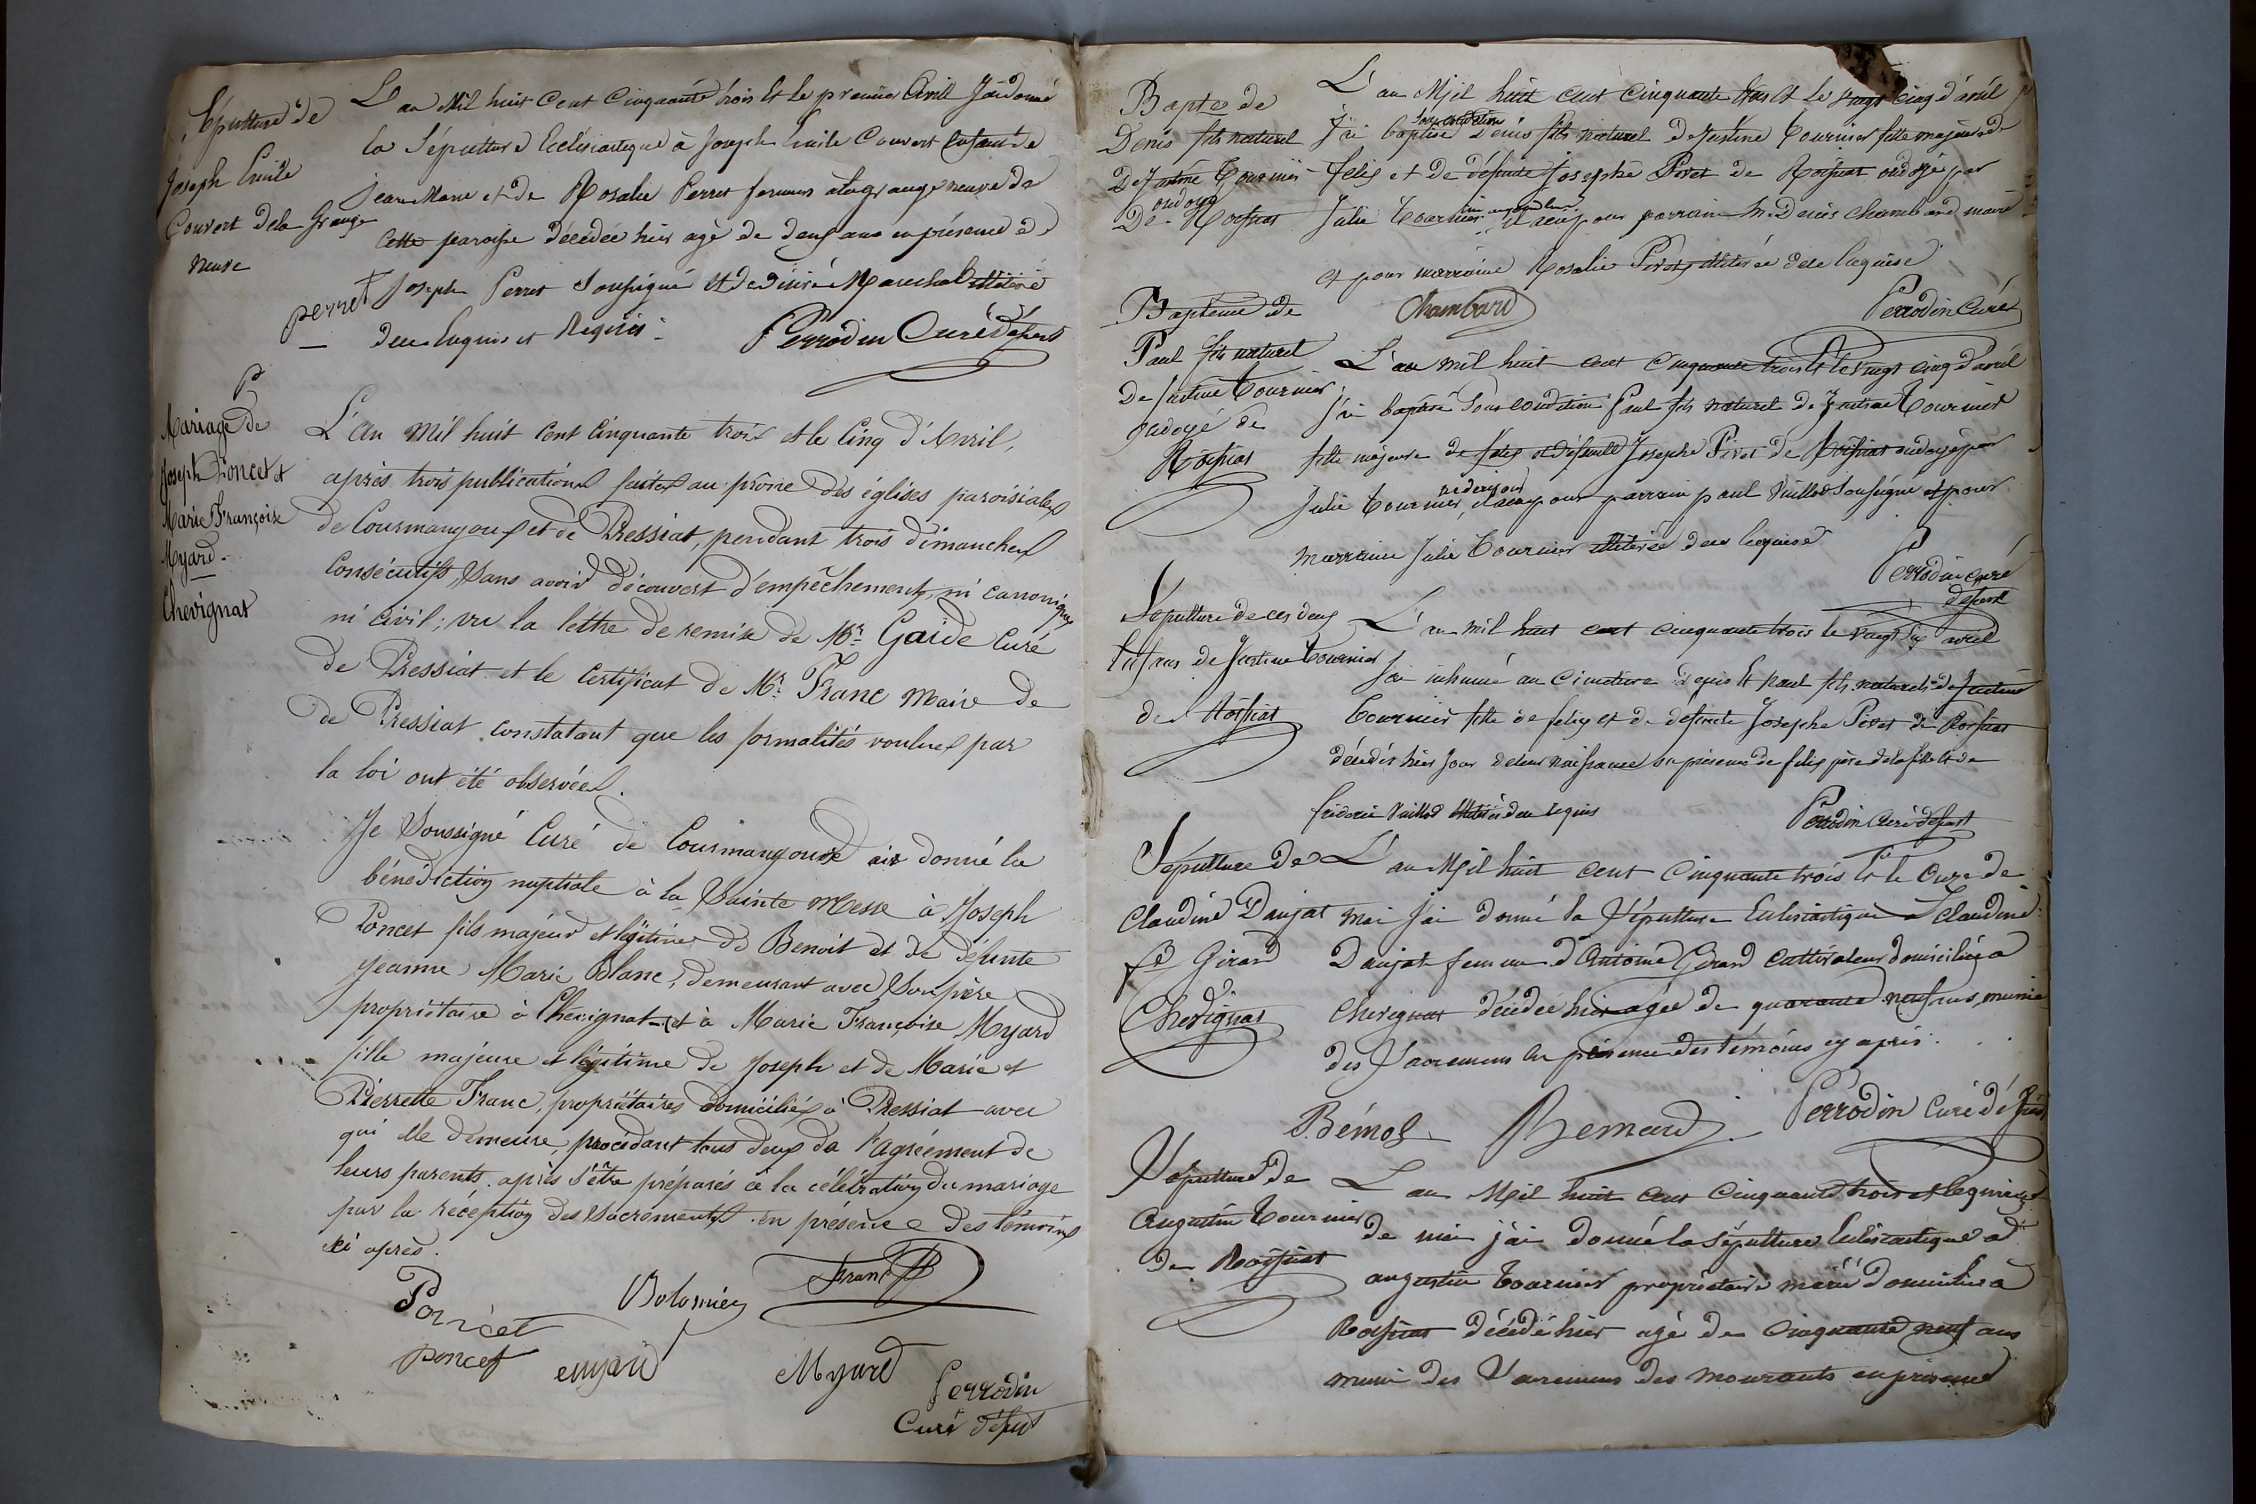 Sépulture de
Joseph Emile
Convert de la Grange
neuve
L'an Mil huit Cent Cinquante trois Et le premier Avril J'ai donné
la Sépulture Ecclésiastique à Joseph Emile Convert enfant de
Jean Marie et de Rosalie Perret fermiers à la grange neuve de
Cette paroisse décédée hier agé de deux ans en présence de
Joseph Perret Soussigné Et de Marechal illitéré
de ce Enquis et Requis.
perret
Perrodin Curé
Mariage de
Joseph Poncet et
Marie Françoise
Myard.
Chevignat
L'An mil huit cent Cinquante trois et le Cinq d'Avril,
après trois publications faites au prône des églises paroisiales
de Courmangoux et de Pressiat, pendant trois dimanches
Consécutifs, Sans avoir découvert d'empêchement, ni canonique
ni civil; vu la lettre de remise de Mr. Gaide Curé
de Pressiat et le Certificat de Mr. Franc Maire de
de Pressiat constatant que les formalités voulues par
la loi ont été observées.
Je Soussigné Curé de Courmangoux ai donné la
bénediction nuptiale à la Sainte Messe à Joseph
Poncet fils majeur et légitime de Benoit et de défunte
Jeanne Marie Blanc, demeurant avec Son père
propriétaire à Chevignat et à Marie Françoise Myard
fille majeure et légitime de Joseph et de Marie et
Pierrette Franc, propriétaires domiciliés à Pressiat avec
qui elle demeure, procédant tous deux de l'agréement de
leurs parents. après s'être préparés à la célébration du mariage
par la réception des Sacrements. en présence des témoins
ci après.
Poncet
Bolomier
Franc
poncet
Myard
Perrodin
Curé
Bapte de
Denis fils naturel
De Justine Tournier
ondoyé
De Roissiat
L'an Mil huit cent Cinquante trois Et le vingt cinq d'avril
sous condition
J'ai baptisé Denis fils naturel de Justine Tournier fille majeure de
felix et de défunte Josephe Pivet de Roissiat ondoyé par
Julie Tournier, il a eu pour parrain Mr. Denis Chambard maire
et pour marraine Rosalie Pivet, illitérée de ce Enquise
Chambard
Perrodin Curé
Bapteme de
Paul fils naturel
De Justine Tournier
ondoyé de
Roissiat
L'an mil huit cent Cinquante trois Et le vingt cinq d'avril
J'ai baptisé Sous condition Paul fils naturel de Justine Tournier
fille majeure de felix et défunte Josephe Pivet de Roissiat ondoyé par
Julie Tournier, il a eu pour parrain paul Vuillod Soussigné et pour
marraine Julie Tournier illitérée de ce Enquise
Perrodin curé
Sépulture de ces deux
Enfans de Justine Tournier
de Roissiat
L'an mil huit cent cinquante trois le vingt six avril
J'ai inhumé au Cimetiere denis Et paul fils naturels de Justine
Tournier fille de felix et de défunte Josephe Pivet de Roissiat
décédés hier Jour de leur naissance en présence de felix père de la fille et de
fréderic Vuillod illitérés de ce requis
Perrodin Curé
Sépulture de
Claudine Daujat
fe Girard
Chevignat
L'an Mil huit cent Cinquante trois Et le Onze de
mai J'ai donné la Sépulture Ecclésiastique à Claudine
Daujat femme d'Antoine Girard cultivateur domiciliée à
Chevignat décédée hier agée de quarante neuf ans, munie
des Sacremens En présence des témoins cy après.
Bémol
Bernard
Perrodin Curé
Sépulture de
Augustin Tournier
de Roissiat
L'an Mil huit cent Cinquante trois et le quinze
de mai j'ai donné la Sépulture Ecclésiastique à
augustin Tournier propriétaire marié domicilié à
Roissiat décédé hier agé de Cinquante neuf ans
muni des Sacremens des mourants en présence